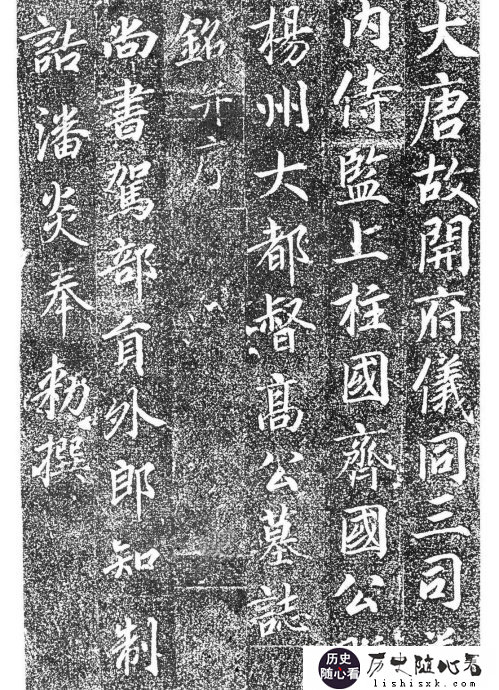 大唐故開府儀同三司
内侍監上柱國齊國公
楊州大都督高公墓誌
銘并序
尚書駕部員外郎知制
誥潘炎奉勑撰
历史
随心看
历史随心看
lishisxk.com